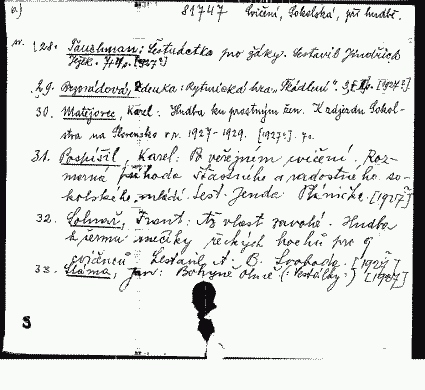 a) 81747 Cvičení, Sokolská, při hudbě.
28. Täuschman: Šestnáctka pro žáky. Sestavil Jindřich
[1927?]
29. Zdenka: Rytmická hra "Předení".
30. Matějovec, Karel: Hudba ku prostným žen. K zájezdu Sokol-
stva na Slovensko v r. 1927-1929. [1927?] 7o.
31. Pospíšil, Karel: B veřejném cvičení. Roz-
marná příhoda šťastného a radostného so-
kolského mládí. Sest. Jenda Plánička. [1927?]
32. Solnař, Frant: Až vlast zavolá. Hudba
k šermu mečíky řeckých hochů pro 9
cvičenců. Sestavil A. B. Svoboda. [1927]
33. Sláma, Jan: Bohyně ohně (: Vestálky :) [1927]
S